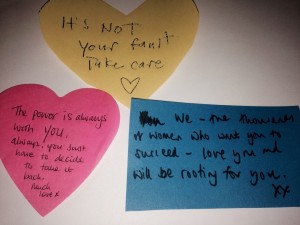 It's NOT
your fault
Take care
♡
The power is always
with you,
always, you just
have to decide
to take it
back.
Much
love x
We – the thousands
of women who want you to
succeed – love you and
will be rooting for you.
xx